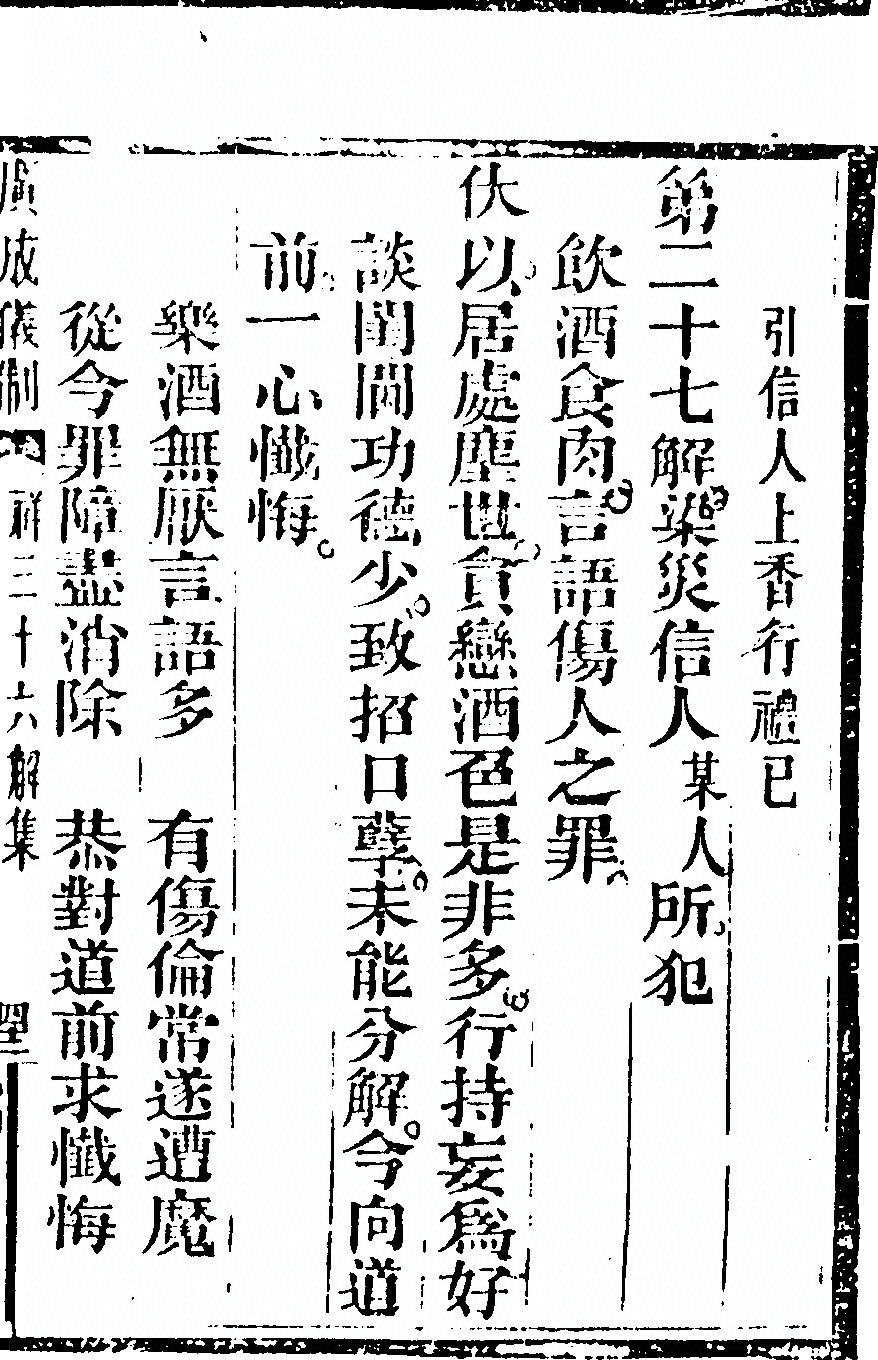 引信人上香行禮已
第二十七解染災信人某人所犯
飲酒食肉言語傷人之罪
伏以居處塵世貪戀酒色是非多行持妄爲好
談閨閫功德少致招口孽未能分解今向道
前一心懺悔
樂酒無厭言語多 有傷倫常遂遭魔
從今罪障盡消除 恭對道前求懺悔
廣成儀制 祥三十六解集